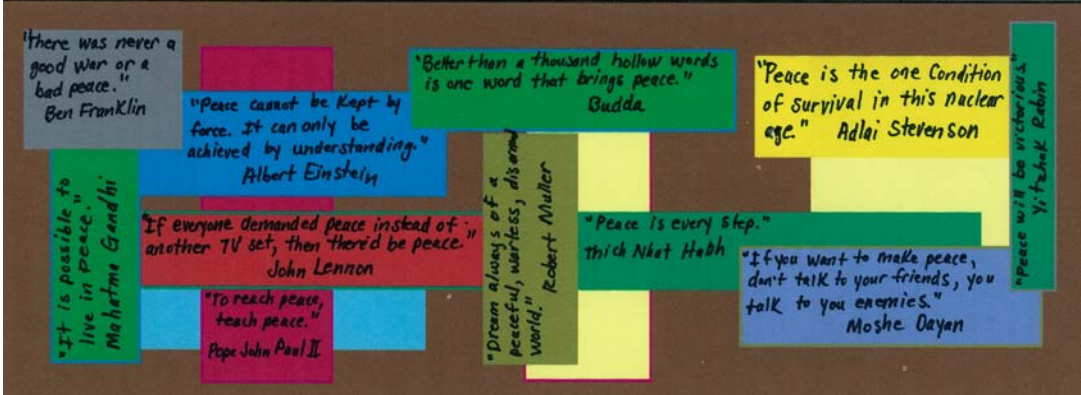 "There was never a
good war or a
bad peace."
Ben Franklin
"Peace cannot be kept by
force. It can only be
achieved by understanding."
Albert Einstein
"Better than a thousand hollow words
is one word that brings peace."
Budda
"Peace is the one Condition
of survival in this nuclear
age." Adlai Stevenson
"Peace will be victorious."
Yitzhak Rabin
"It is possible to
live in peace."
Mahatma Gandhi
"If everyone demanded peace instead of
another TV set, then there'd be peace."
John Lennon
"To reach peace,
teach peace."
Pope John Paul II
"Dream always of a
peaceful, warless, disarmed
world."
Robert Muller
"Peace is every step."
Thich Nhat Hahh
"If you want to make peace,
don't talk to your friends, you
talk to you enemies."
Moshe Dayan